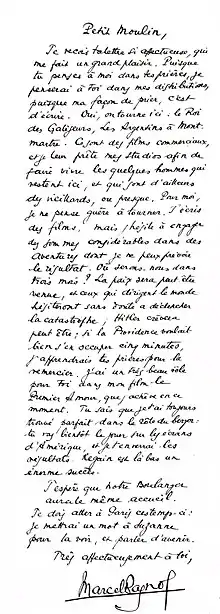 Petit Moulin,
Je reçois ta lettre si affectueuse, qui
me fait un grand plaisir. Puisque
tu penses à moi dans tes prières, je
penserai à toi dans mes distributions,
puisque ma façon de prier, c'est
d'écrire. Oui, on tourne ici le Roi
des Galéjeurs, Les Argentins à Mont-
martre. Ce sont des films commerciaux,
et je leur prête mes studios afin de
faire vivre les quelques hommes qui
restent ici, et qui sont d'ailleurs
des vieillards, ou presque. Pour moi,
je ne pense guère à tourner. J'écris
des films, mais j'hésite à engager
des sommes considérables dans des
aventures dont je ne peux prévoir
le résultat. Où serons nous dans
trois mois ? La paix sera peut être
venue, et ceux qui dirigent le monde
hésiteront sans doute à déclencher
la catastrophe, Hitler crèvera
peut être ; si la Providence voulait
bien s'en occuper cinq minutes,
j'apprendrais tes prières pour la
remercier. J'ai un très beau rôle
pour toi dans mon film le
Premier Amour, que j'achève en ce
moment. Tu sais que je t'ai toujours
trouvé parfait dans le rôle du berger :
tu vas bientôt le jouer sur les écrans
d'Amérique, et je t'enverrai les
résultats. Regain est là bas un
énorme succès.
J'espère que notre Boulanger
aura le même accueil.
Je dois aller à Paris ces temps-ci :
je mettrai un mot à Suzanne
pour la voir, et parler d'avenir.
Très affectueusement à toi,
Marcel Pagnol